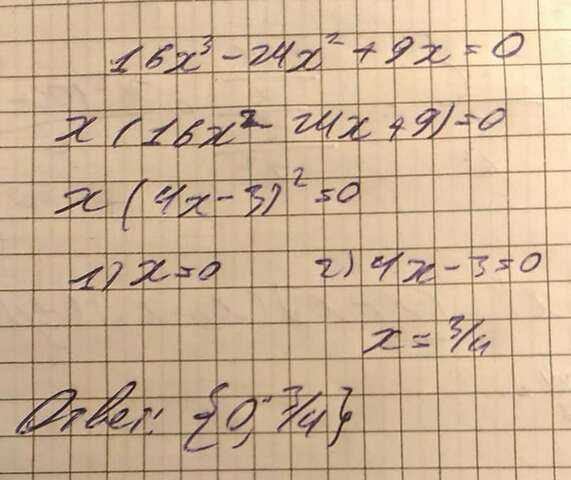 16x³ - 24x² + 9x = 0
x (16x² - 24x + 9) = 0
x (4x - 3)² = 0
1) x = 0 2) 4x - 3 = 0
x = 3/4
Ответ: {0; 3/4}